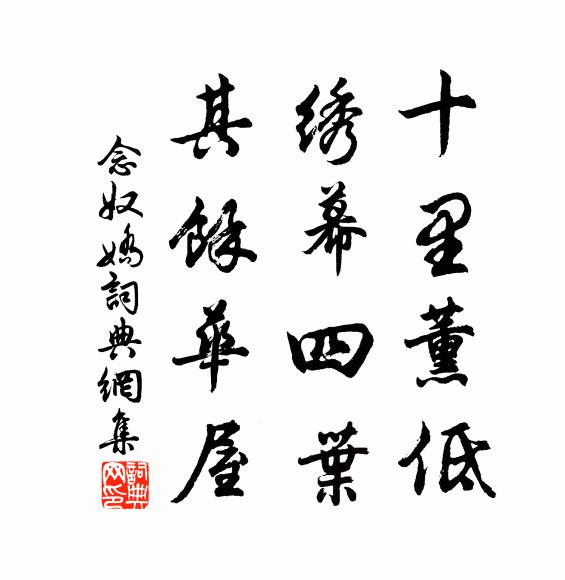 十里薰低
绣幕四葉
其餘華屋
念奴嬌詞典網集
詞典网印